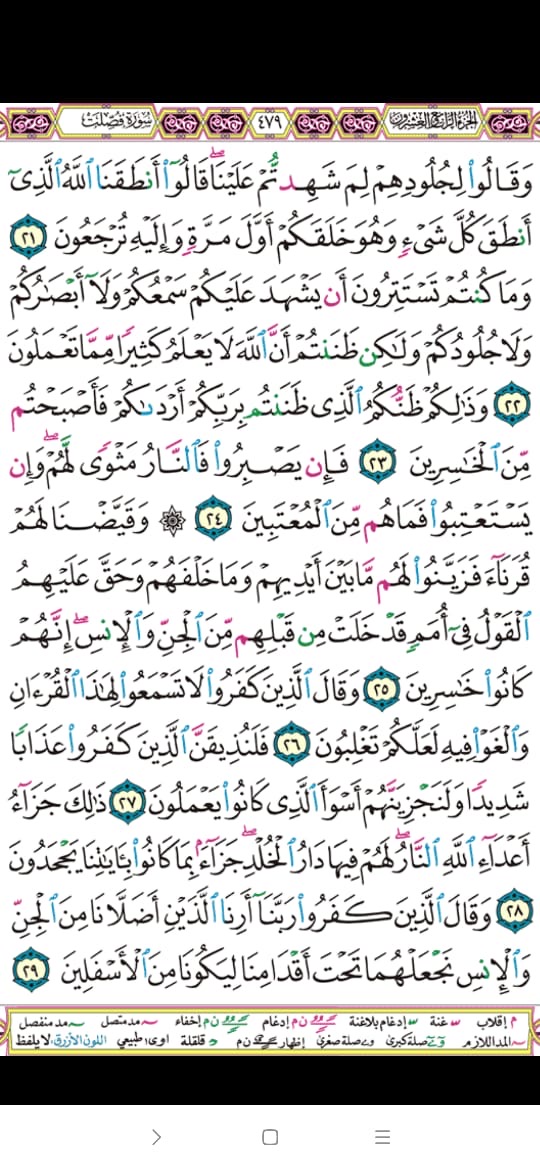 الجزء الرابع والعشرون ٤٧٩ سورة فصلت
وَقَالُوا۟ لِجُلُودِهِمْ لِمَ شَهِدتُّمْ عَلَيْنَا ۖ قَالُوٓا۟ أَنطَقَنَا ٱللَّهُ ٱلَّذِىٓ
أَنطَقَ كُلَّ شَىْءٍ وَهُوَ خَلَقَكُمْ أَوَّلَ مَرَّةٍ وَإِلَيْهِ تُرْجَعُونَ ٢١
وَمَا كُنتُمْ تَسْتَتِرُونَ أَن يَشْهَدَ عَلَيْكُمْ سَمْعُكُمْ وَلَآ أَبْصَٰرُكُمْ
وَلَا جُلُودُكُمْ وَلَٰكِن ظَنَنتُمْ أَنَّ ٱللَّهَ لَا يَعْلَمُ كَثِيرًا مِّمَّا تَعْمَلُونَ
٢٢ وَذَٰلِكُمْ ظَنُّكُمُ ٱلَّذِى ظَنَنتُم بِرَبِّكُمْ أَرْدَىٰكُمْ فَأَصْبَحْتُم
مِّنَ ٱلْخَٰسِرِينَ ٢٣ فَإِن يَصْبِرُوا۟ فَٱلنَّارُ مَثْوًى لَّهُمْ ۖ وَإِن
يَسْتَعْتِبُوا۟ فَمَا هُم مِّنَ ٱلْمُعْتَبِينَ ٢٤ ۞ وَقَيَّضْنَا لَهُمْ
قُرَنَآءَ فَزَيَّنُوا۟ لَهُم مَّا بَيْنَ أَيْدِيهِمْ وَمَا خَلْفَهُمْ وَحَقَّ عَلَيْهِمُ
ٱلْقَوْلُ فِىٓ أُمَمٍ قَدْ خَلَتْ مِن قَبْلِهِم مِّنَ ٱلْجِنِّ وَٱلْإِنسِ ۖ إِنَّهُمْ
كَانُوا۟ خَٰسِرِينَ ٢٥ وَقَالَ ٱلَّذِينَ كَفَرُوا۟ لَا تَسْمَعُوا۟ لِهَٰذَا ٱلْقُرْءَانِ
وَٱلْغَوْا۟ فِيهِ لَعَلَّكُمْ تَغْلِبُونَ ٢٦ فَلَنُذِيقَنَّ ٱلَّذِينَ كَفَرُوا۟ عَذَابًا
شَدِيدًا وَلَنَجْزِيَنَّهُمْ أَسْوَأَ ٱلَّذِى كَانُوا۟ يَعْمَلُونَ ٢٧ ذَٰلِكَ جَزَآءُ
أَعْدَآءِ ٱللَّهِ ٱلنَّارُ ۖ لَهُمْ فِيهَا دَارُ ٱلْخُلْدِ ۖ جَزَآءًۢ بِمَا كَانُوا۟ بِـَٔايَٰتِنَا يَجْحَدُونَ
٢٨ وَقَالَ ٱلَّذِينَ كَفَرُوا۟ رَبَّنَآ أَرِنَا ٱلَّذَيْنِ أَضَلَّانَا مِنَ ٱلْجِنِّ
وَٱلْإِنسِ نَجْعَلْهُمَا تَحْتَ أَقْدَامِنَا لِيَكُونَا مِنَ ٱلْأَسْفَلِينَ ٢٩
م إقلاب غنة إدغام بلاغنة ن م إدغام ن م إخفاء مد متصل مد منفصل
المد اللازم صلة كبرى صلة صغرى إظهار ن م قلقلة اوى طبيعي اللون الأزرق: لا يلفظ